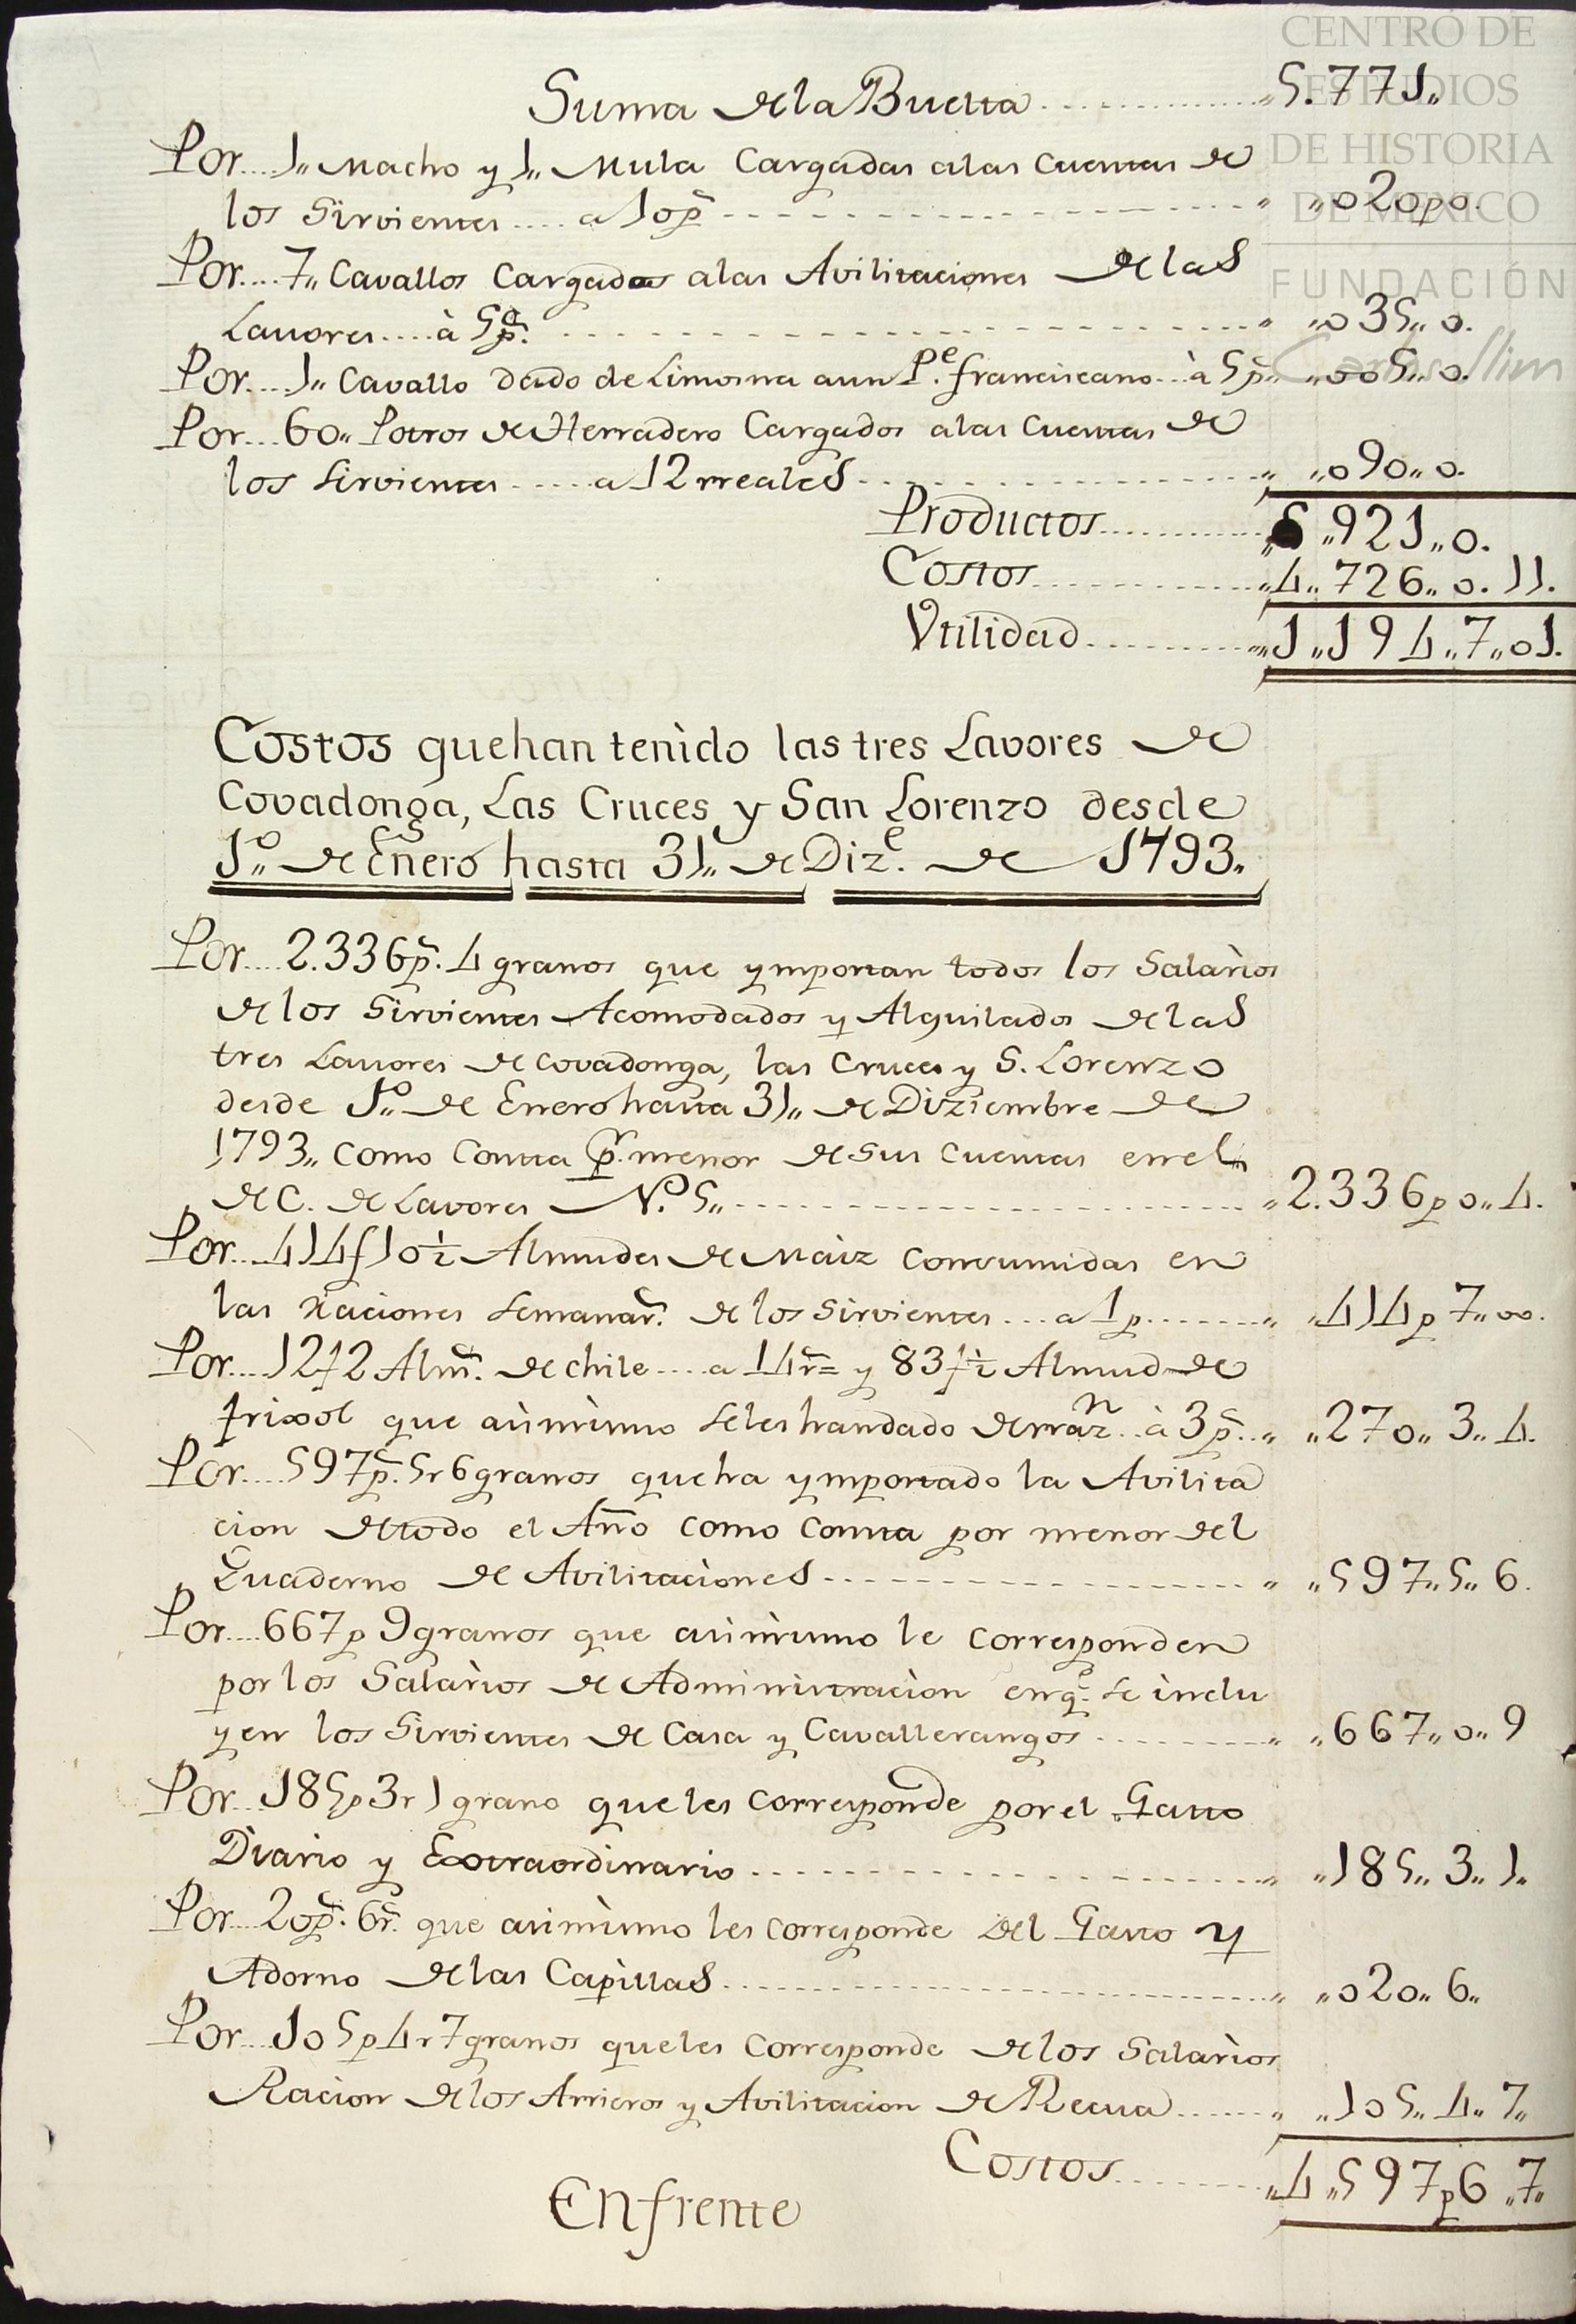 CENTRO DE
ESTUDIOS
DE HISTORIA
DE MÉXICO
FUNDACIÓN
Carlos Slim
Suma de la Buelta ............ „5.771„
Por....1„ Macho y 1„ Mula Cargadas alas Cuentas de
los Sirvientes .... a 10p̃ ------ „ „020p0.
Por....7„ Cavallos Cargados alas Avilitaciones de las
Lavores .... à 5p̃. ------ „ „035„0.
Por....1„ Cavallo dado de Limosna aun P.e franciscano .. à 5p̃„ „005„0.
Por...60„ Potros de Herradero Cargados alas Cuentas de
los Sirvientes ..... a 12 rreales ------ „ „090„0.
Productos............ „5„921„0.
Costos............ „4„726„0.11.
Vtilidad............ „1„194„7„01.
Costos quehan tenìdo las tres Lavores de
Covadonga, Las Cruces y San Lorenzo desde
1„o de Enero hasta 31„ de Diz.e de 1793„
Por....2.336p̃. 4 granos que ymportan todos los Salàrios
de los Sirvientes Acomodados y Alquilados de las
tres Lavores de Covadonga, las Cruces y S. Lorenzo
desde 1„o de Enero hasta 31„ de Diziembre de
1793„ como Consta p.r menor de sus Cuentas en el
de C. de Lavores N.o 5„ ------ „2.336p0„4.
Por...414f10½ Almudes de Maiz Consumidas en
las Raciones Semanar̃. de los Sirvientes ... a 1p....... „ „414p7„00.
Por....12f2 Alm̃. de chile .... a 14r̃= y 83f½ Almud de
frixol que asìmìsmo seles handado de rraz.n .. à 3p̃.. „ „270„3„4.
Por....597p̃. 5r6granos queha ymportado la Avilita
cion detodo el Año como Consta por menor del
Quaderno de Avilitaciònes ------ „ „597„5„6.
Por....667p9granos que asimìsmo le corresponden
por los Salàrios de Administracìon enq.e se inclu
yen los Sirvientes de Casa y Cavallerangos ........ „ „667„0„9
Por...185p3r1grano queles corresponde por el Gasto
Diario y Extraordinario ------ „ „185„3„1„
Por....20p̃. 6r̃. que asimìsmo les corresponde del Gasto y
Adorno de las Capìllas ------ „ „020„6„
Por....105p4r7granos queles corresponde de los Salàrios
Racion de los Arrieros y Avilitacion de Recua....... „ „105„4„7„
Costos........ „4„597p6„7„
Enfrente